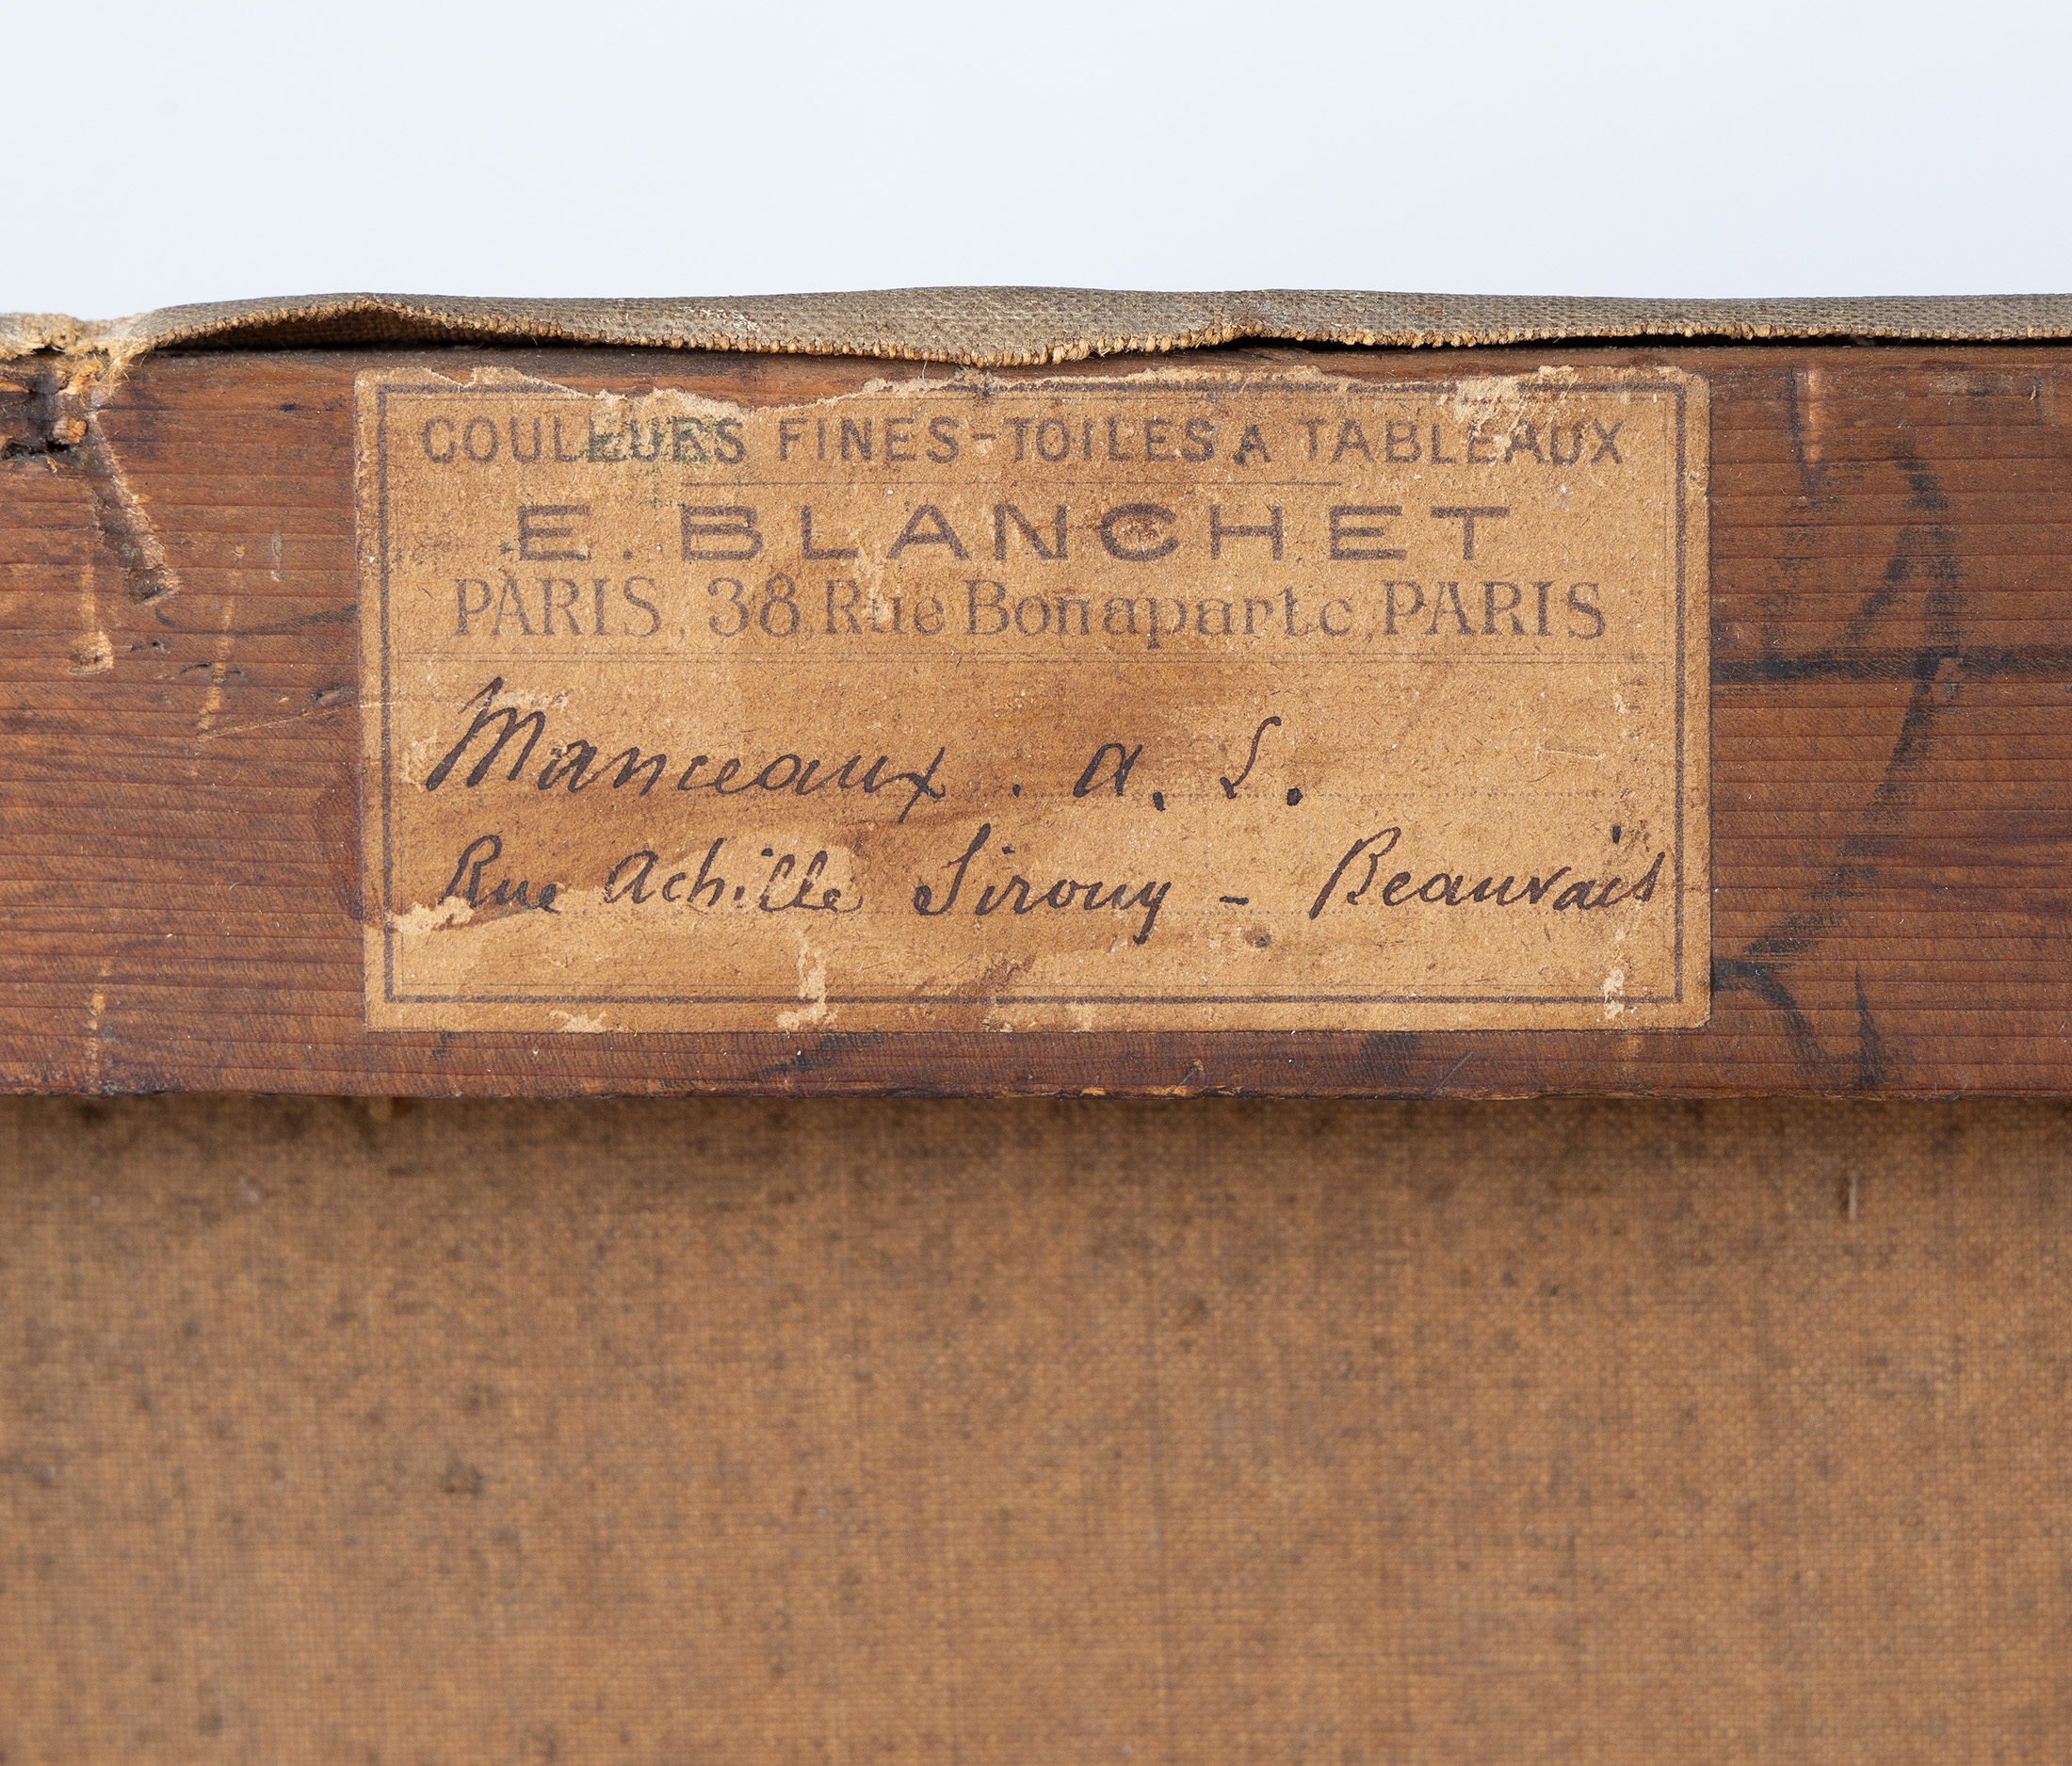 COULEURS FINES-TOILES A TABLEAUX
E. BLANCHET
PARIS, 38, Rue Bonaparte, PARIS
Manceaux . A. L.
Rue Achille Sirouy - Beauvais